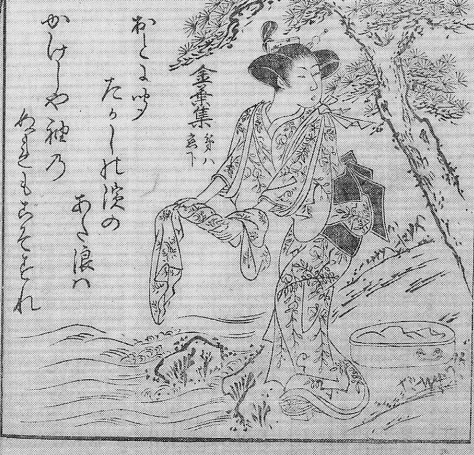 金葉集
第八
恋下
おとに聞
たかしの濱の
あた浪ハ
かけしや袖乃
ぬれもこそすれ